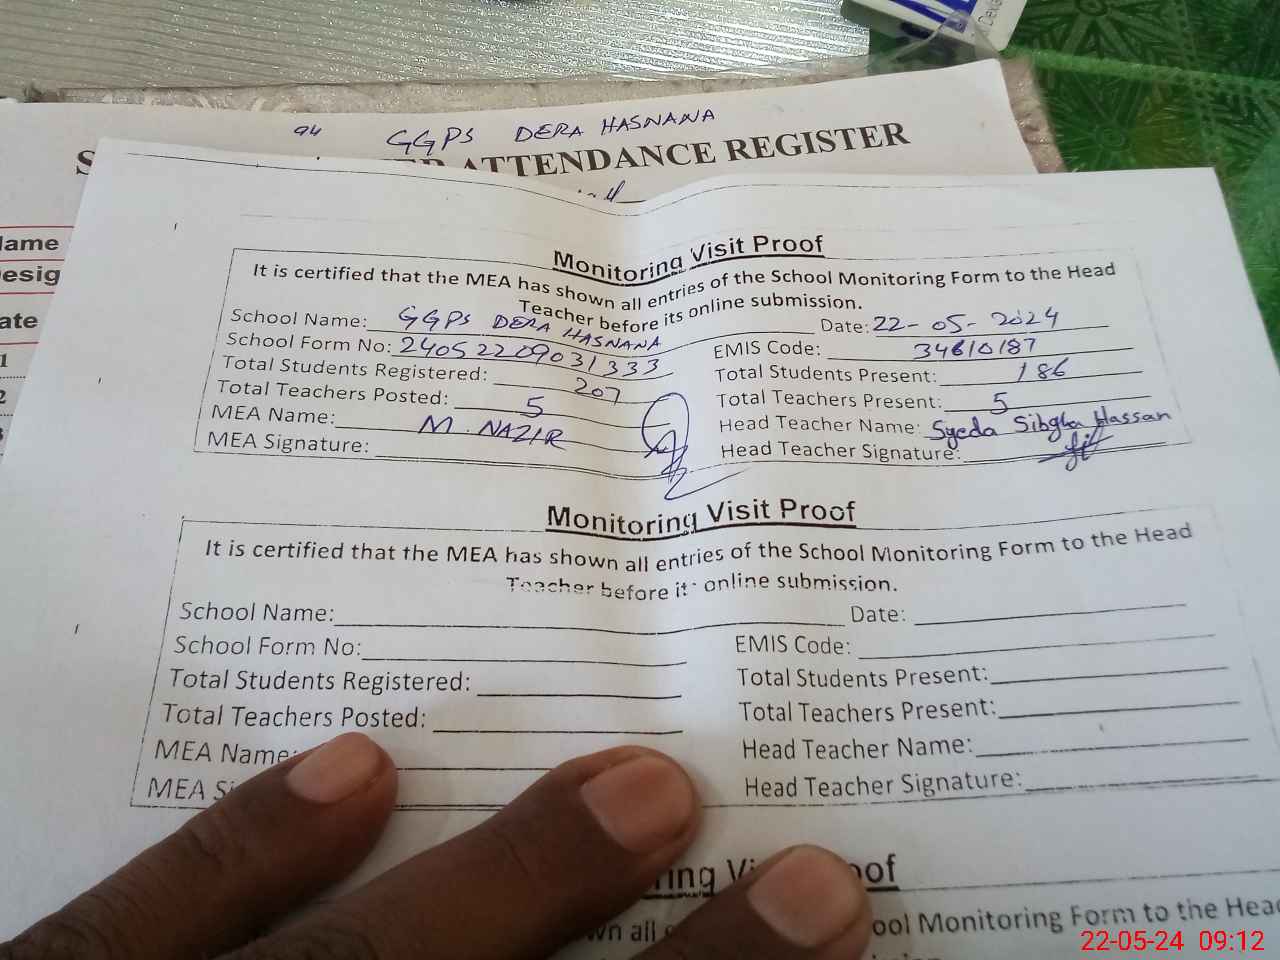 94 GGPS DERA HASNANA
ATTENDANCE REGISTER
Monitoring Visit Proof
It is certified that the MEA has shown all entries of the School Monitoring Form to the Head
Teacher before its online submission.
School Name: GGPS DERA HASNANA Date: 22-05-2024
School Form No: 2405220903 1333 EMIS Code: 34610187
Total Students Registered: 207 Total Students Present: 186
Total Teachers Posted: 5 Total Teachers Present: 5
MEA Name: M. NAZIR Head Teacher Name: Syeda Sibgha Hassan
MEA Signature: Head Teacher Signature:
Monitoring Visit Proof
It is certified that the MEA has shown all entries of the School Monitoring Form to the Head
Teacher before it online submission.
School Name: Date:
School Form No: EMIS Code:
Total Students Registered: Total Students Present:
Total Teachers Posted: Total Teachers Present:
MEA Name: Head Teacher Name:
MEA Si Head Teacher Signature:
ring Vi oof
wn all ool Monitoring Form to the Head
22-05-24 09:12
ame
esig
ate
1
2
3